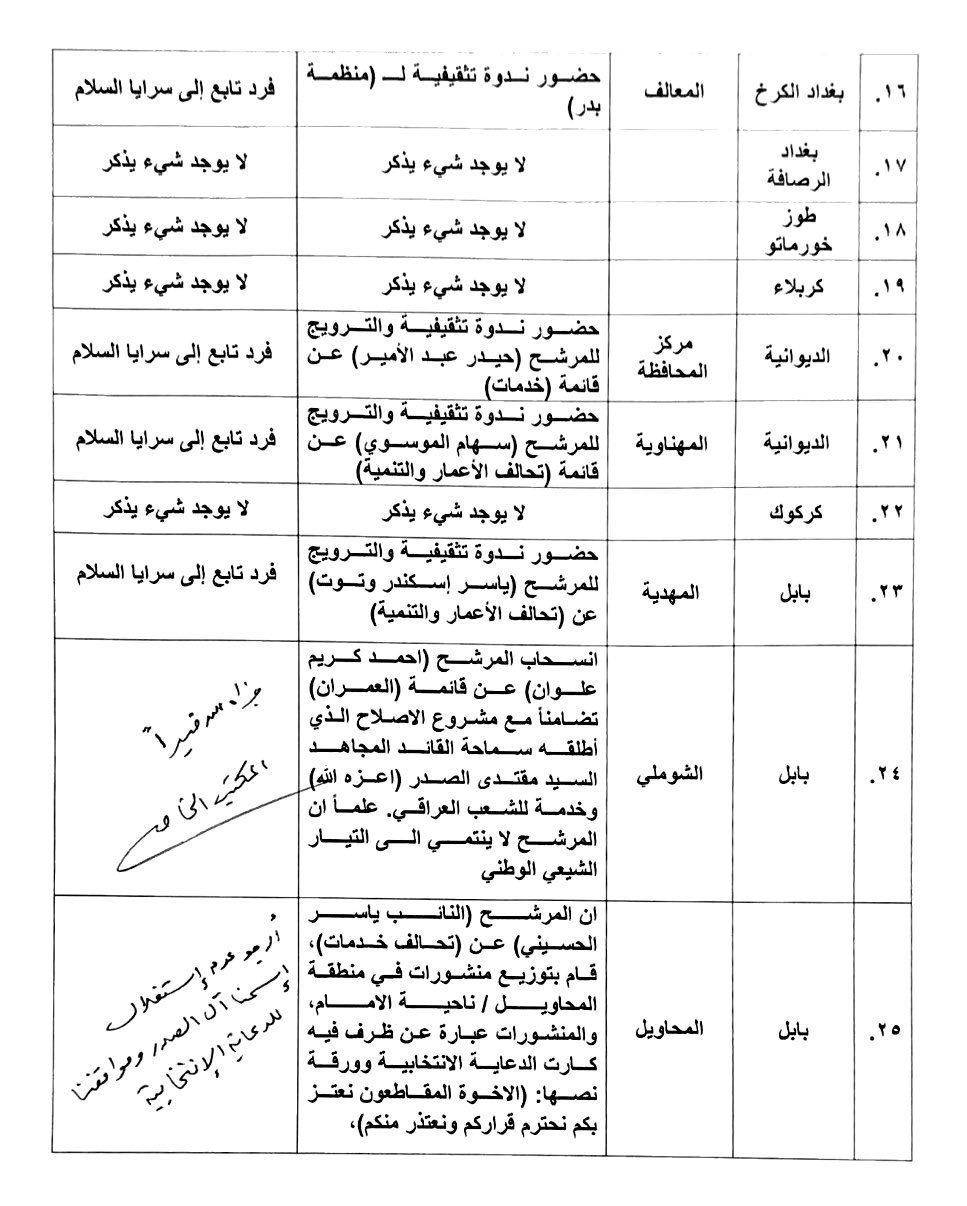 ١٦. بغداد الكرخ المعالف حضور ندوة تثقيفية لـ (منظمة فرد تابع إلى سرايا السلام
بدر)
١٧. بغداد لا يوجد شيء يذكر لا يوجد شيء يذكر
الرصافة
١٨. طوز لا يوجد شيء يذكر لا يوجد شيء يذكر
خورماتو
١٩. كربلاء لا يوجد شيء يذكر لا يوجد شيء يذكر
٢٠. الديوانية مركز المحافظة حضور ندوة تثقيفية والترويج فرد تابع إلى سرايا السلام
للمرشح (حيدر عبد الأمير) عن
قائمة (خدمات)
٢١. الديوانية المهناوية حضور ندوة تثقيفية والترويج فرد تابع إلى سرايا السلام
للمرشح (سهام الموسوي) عن
قائمة (تحالف الأعمار والتنمية)
٢٢. كركوك لا يوجد شيء يذكر لا يوجد شيء يذكر
٢٣. بابل المهدية حضور ندوة تثقيفية والترويج فرد تابع إلى سرايا السلام
للمرشح (ياسر إسكندر وتوت)
عن (تحالف الأعمار والتنمية)
٢٤. بابل الشوملي
انسحاب المرشح (احمد كريم
علوان) عن قائمة (العمران)
تضامناً مع مشروع الاصلاح الذي
أطلقه سماحة القائد المجاهد
السيد مقتدى الصدر (اعزه الله)
وخدمة للشعب العراقي. علماً ان
المرشح لا ينتمي الى التيار
الشيعي الوطني
جزاه الله خيراً
المكتب الخاص
٢٥. بابل المحاويل
ان المرشح (النائب ياسر
الحسيني) عن (تحالف خدمات)،
قام بتوزيع منشورات في منطقة
المحاويل / ناحية الامام،
والمنشورات عبارة عن ظرف فيه
كارت الدعاية الانتخابية وورقة
نصها: (الاخوة المقاطعون نعتز
بكم نحترم قراركم ونعتذر منكم)،
أرجو عدم إستغلال
إسمنا آل الصدر ومواقفنا
للدعاية الإنتخابية